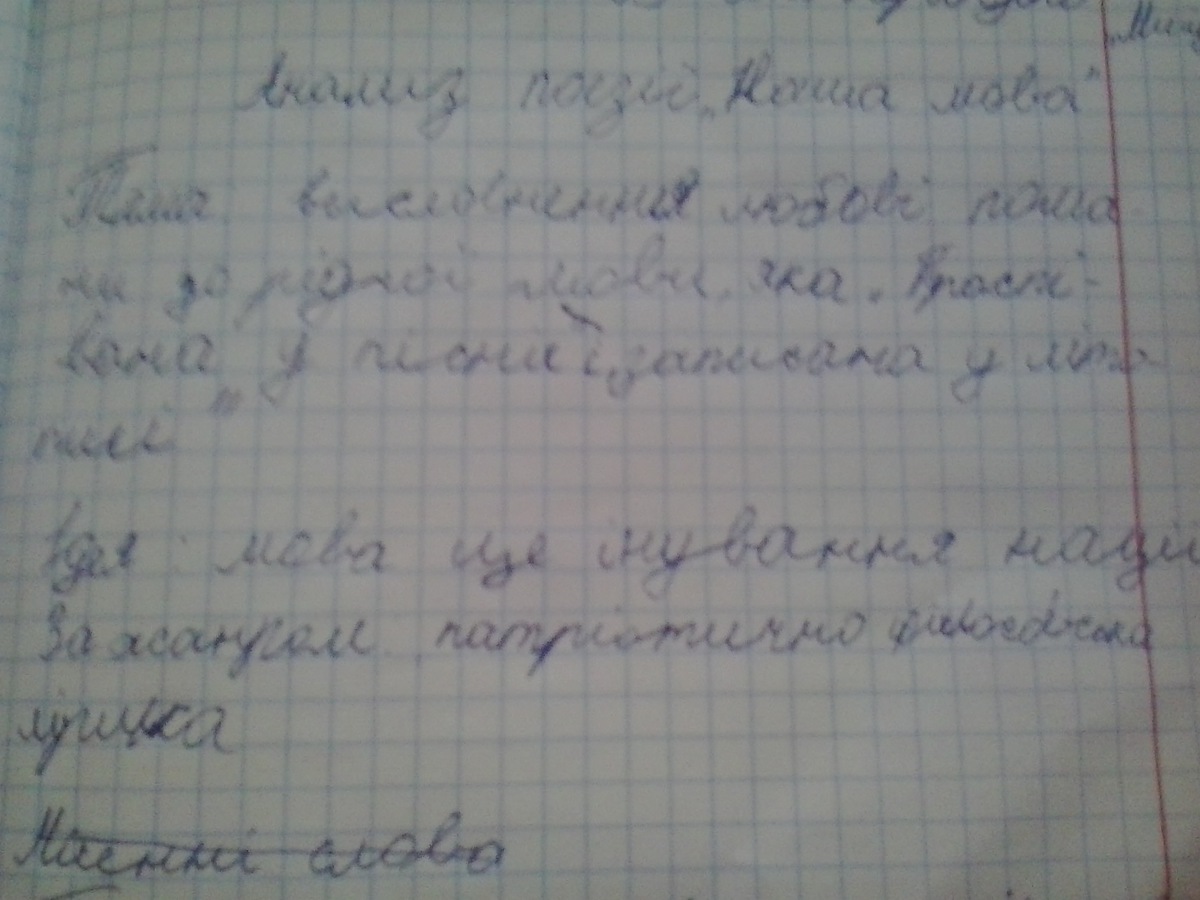 Анализ поезії „Наша мова"
Тема висловнення любові поша
ни до рідної мови, яка „
вана у пісні і записана у літо
писі"
Ідея мова це існування нації
За жанром патріотично філософська
лірика
слова